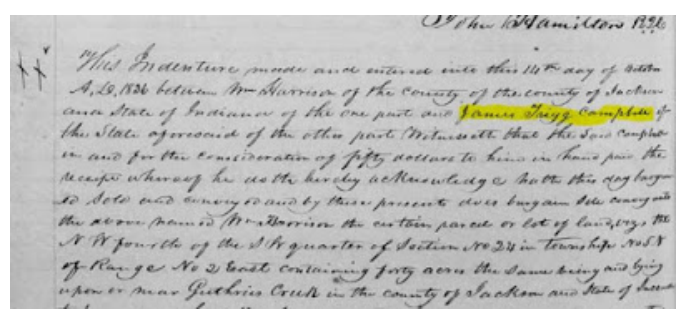 John Hamilton
This Indenture made and entered into this 14th day of October
A,D, 1836 between Wm Harrison of the county of the county of Jackson
and State of Indiana of the one part and James Trigg Campbell of
the State aforesaid of the other part Witnesseth that the said Campbell
in and for the consideration of fifty dollars to him in hand paid the
receipt whereof he doth hereby acknowledge hath this day bargain
ed Sold and conveyed and by these presents does bargain Sell convey unto
the above named Wm Harrison the certain parcel or lot of land, viz, the
N W fourth of the S W quarter of Section No 24 in Township No 5 N
of Range No 2 East containing forty acres the same being and lying
upon or near Guthries Creek in the county of Jackson and State of